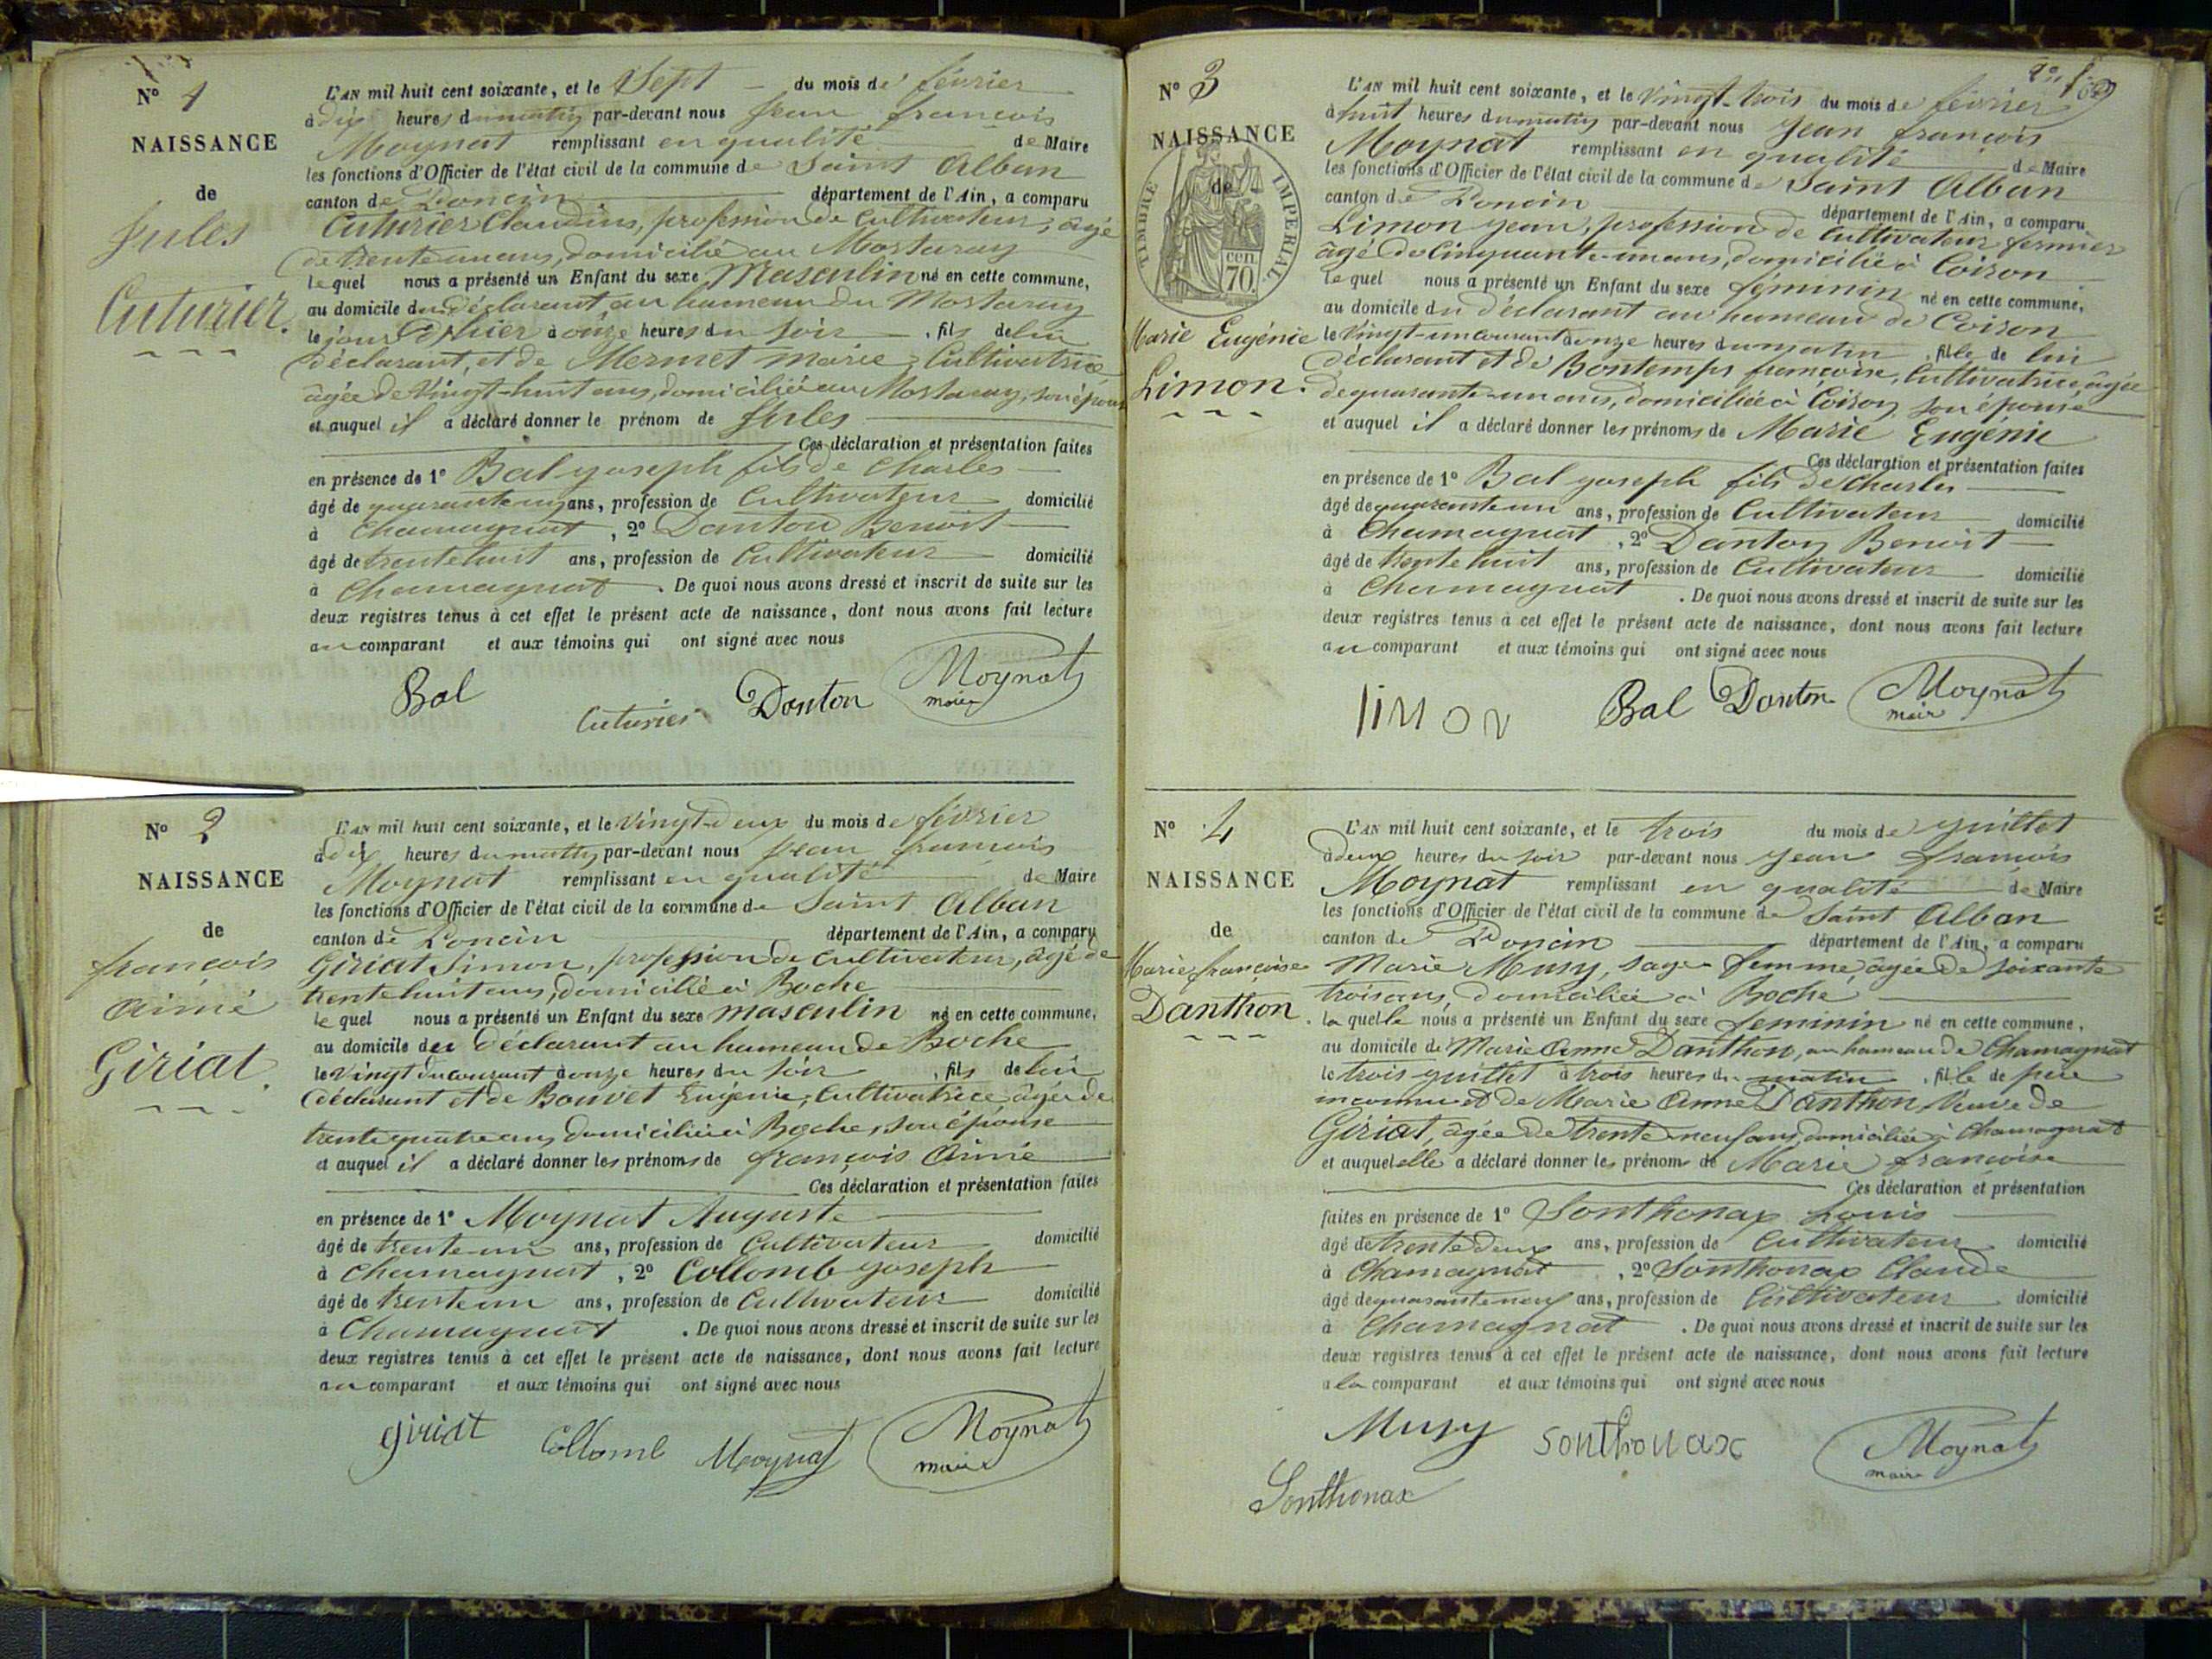 N° 1
NAISSANCE
de
Jules
Cuturier.
L'AN mil huit cent soixante, et le Sept du mois de février
à dix heures du matin par-devant nous Jean françois
Moynat remplissant en qualité de Maire
les fonctions d'Officier de l'état civil de la commune de Saint Alban
canton de Poncin département de l'Ain, a comparu
Cuturier Claudius, profession de Cultivateur, âgé
de trente un ans, domicilié au Mortaray
le quel nous a présenté un Enfant du sexe Masculin né en cette commune,
au domicile du déclarant, au hameau du Mortaray
le jour d'hier à onze heures du soir, fils de lui
déclarant, et de Mermet Marie, Cultivatrice
âgée de Vingt-huit ans, domiciliée au Mortaray, son épouse
et auquel il a déclaré donner le prénom de Jules
Ces déclaration et présentation faites
en présence de 1° Bal yoseph fils de Charles
âgé de quarante un ans, profession de Cultivateur domicilié
à Chamagnat, 2° Danton Benoit
âgé de trente huit ans, profession de Cultivateur domicilié
à Chamagnat. De quoi nous avons dressé et inscrit de suite sur les
deux registres tenus à cet effet le présent acte de naissance, dont nous avons fait lecture
au comparant et aux témoins qui ont signé avec nous
Bal Cuturier Danton Moynat
maire
N° 2
NAISSANCE
de
françois
Aimé
Giriat.
L'AN mil huit cent soixante, et le Vingt-deux du mois de février
à dix heures du matin par-devant nous Jean françois
Moynat remplissant en qualité de Maire
les fonctions d'Officier de l'état civil de la commune de Saint Alban
canton de Poncin département de l'Ain, a comparu
Giriat Simon, profession de Cultivateur, âgé de
trente huit ans, domicilié à Boche
le quel nous a présenté un Enfant du sexe masculin né en cette commune,
au domicile du déclarant au hameau de Boche
le Vingt du courant à onze heures du soir, fils de lui
déclarant et de Bouvet Eugénie, Cultivatrice âgée de
trente quatre ans domiciliée à Boche, son épouse
et auquel il a déclaré donner les prénoms de françois Aimé
Ces déclaration et présentation faites
en présence de 1° Moynat Auguste
âgé de trente un ans, profession de Cultivateur domicilié
à Chamagnat, 2° Collomb yoseph
âgé de trente un ans, profession de Cultivateur domicilié
à Chamagnat. De quoi nous avons dressé et inscrit de suite sur les
deux registres tenus à cet effet le présent acte de naissance, dont nous avons fait lecture
au comparant et aux témoins qui ont signé avec nous
giriat Collomb Moynat Moynat
maire
N° 3
NAISSANCE
de
TIMBRE IMPERIAL
cen.
70.
Marie Eugénie
Limon.
L'AN mil huit cent soixante, et le Vingt-trois du mois de février
à huit heures du matin par-devant nous Jean françois
Moynat remplissant en qualité de Maire
les fonctions d'Officier de l'état civil de la commune de Saint Alban
canton de Poncin département de l'Ain, a comparu
Limon yean, profession de Cultivateur fermier
âgé de Cinquante-un ans, domicilié à Coiron
le quel nous a présenté un Enfant du sexe féminin né en cette commune,
au domicile du déclarant au hameau de Coiron
le Vingt-un courant à onze heures du matin, fille de lui
déclarant et de Bontemps françoise, Cultivatrice, âgée
de quarante-un ans, domiciliée à Coiron son épouse
et auquel il a déclaré donner les prénoms de Marie Eugénie
Ces déclaration et présentation faites
en présence de 1° Bal yoseph fils de Charles
âgé de quarante un ans, profession de Cultivateur domicilié
à Chamagnat, 2° Danton Benoit
âgé de trente huit ans, profession de Cultivateur domicilié
à Chamagnat. De quoi nous avons dressé et inscrit de suite sur les
deux registres tenus à cet effet le présent acte de naissance, dont nous avons fait lecture
au comparant et aux témoins qui ont signé avec nous
limon Bal Danton Moynat
maire
N° 4
NAISSANCE
de
Marie françoise
Danthon.
L'AN mil huit cent soixante, et le trois du mois de yuillet
à deux heures du soir par-devant nous yean françois
Moynat remplissant en qualité de Maire
les fonctions d'Officier de l'état civil de la commune de Saint Alban
canton de Poncin département de l'Ain, a comparu
Marie Musy, sage-femme, âgée de soixante
trois ans, domiciliée à Boche
la quelle nous a présenté un Enfant du sexe féminin né en cette commune,
au domicile de Marie Anne Danthon, au hameau de Chamagnat
le trois yuillet à trois heures du matin, fille de père
inconnu et de Marie Anne Danthon, Veuve de
Giriat, âgée de trente-neuf ans, domiciliée à Chamagnat
et auquel elle a déclaré donner les prénoms de Marie françoise
Ces déclaration et présentation
faites en présence de 1° Sonthonax Louis
âgé de trente deux ans, profession de Cultivateur domicilié
à Chamagnat, 2° Sonthonax Claude
âgé de quarante neuf ans, profession de Cultivateur domicilié
à Chamagnat. De quoi nous avons dressé et inscrit de suite sur les
deux registres tenus à cet effet le présent acte de naissance, dont nous avons fait lecture
a la comparant et aux témoins qui ont signé avec nous
Musy Sonthonax Moynat
maire
Sonthonax